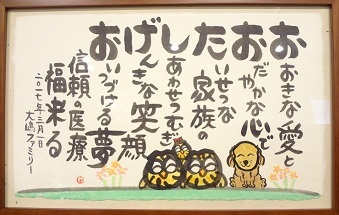 おおきな愛と
おだやかな心で
たいせつな家族の
しあわせつむぎ
げんきな笑顔
おいつづける夢
信頼の医療
福来る
二〇一七年三月一日
大嶋ファミリー